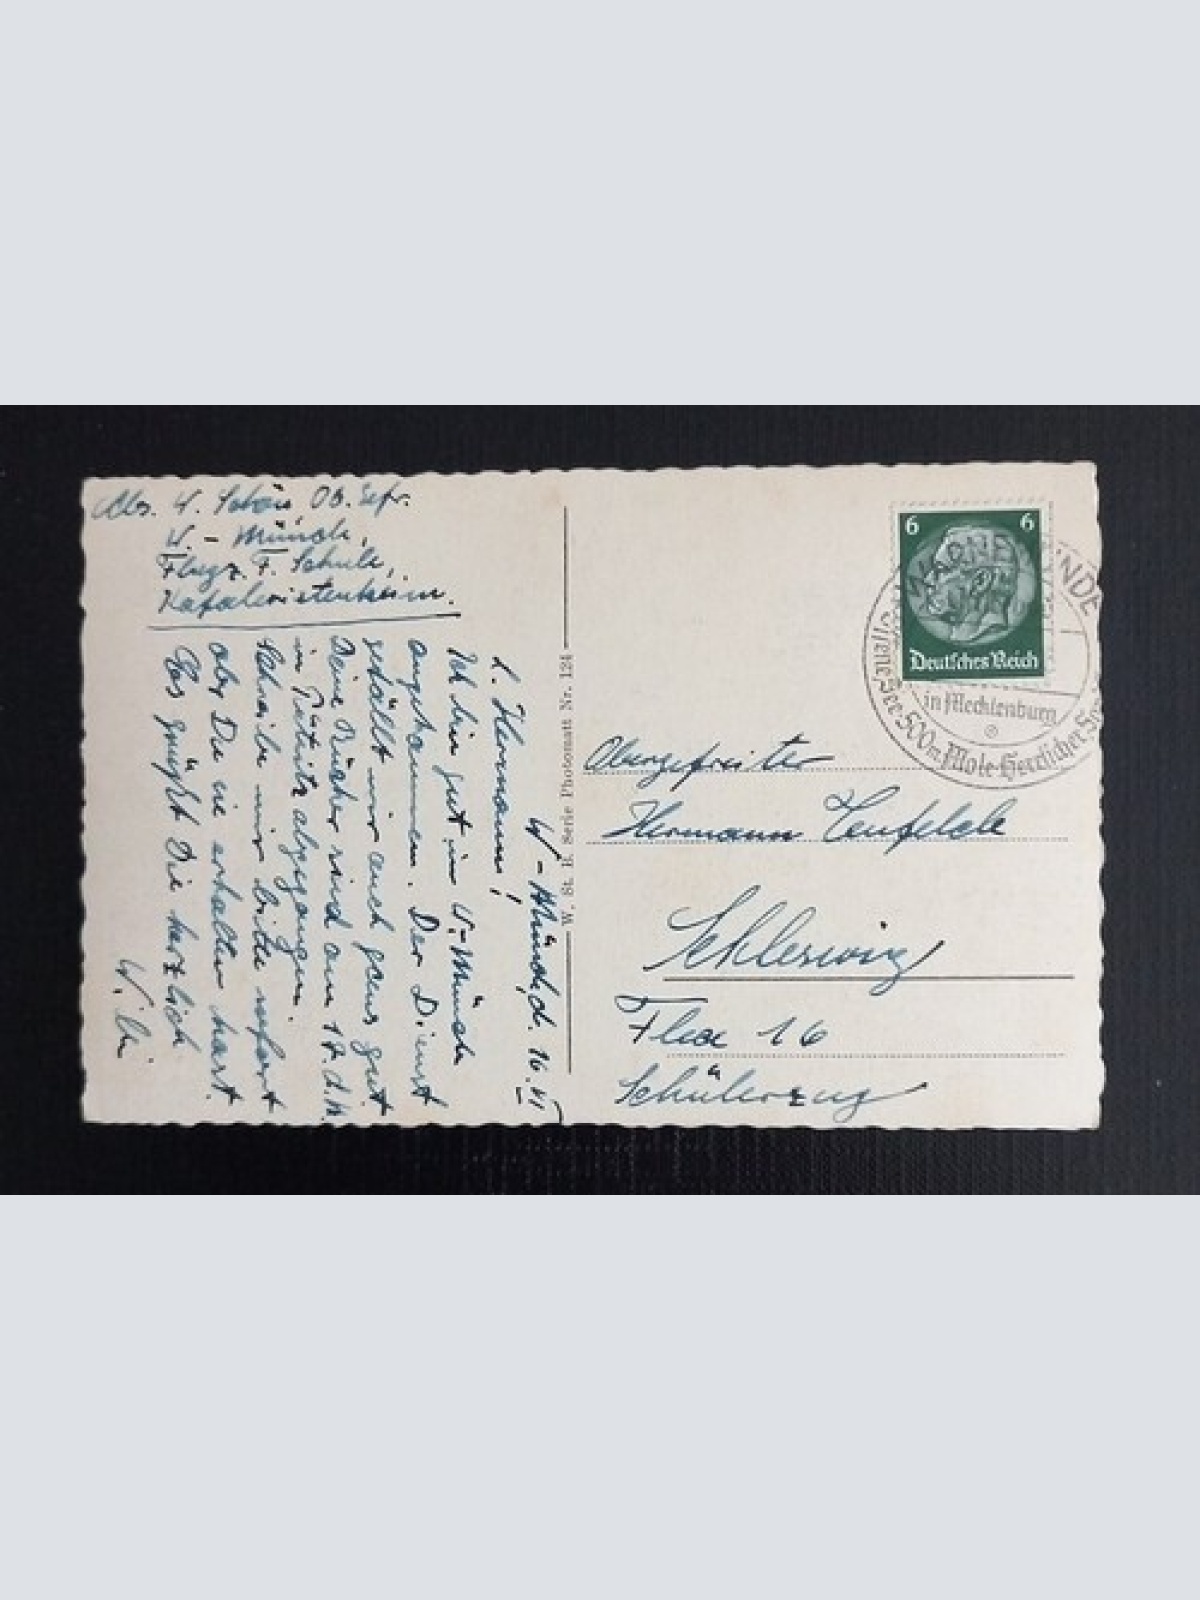 Abs. W. Schön, OB. Gefr.
W. - Münde,
Flugz. F. Schule,
W.-Münde, d. 16. VI
L. Hermann!
Ich bin gut in W.-Münde
angekommen. Der Dienst
gefällt mir auch ganz gut
Deine Bücher sind am 17. d. M.
in Pütnitz abgegangen.
Schreibe mir bitte sofort
ob Du sie erhalten hast.
Es grüßt Die herzlich
Willi
W. St. B. Serie Photomatt Nr. 124
6 6
Deutsches Reich
WARNEMÜNDE
in Mecklenburg
Offene See · 500 m Mole · Herrlicher
Obergefreiter
Hermann
Schleswig
Flea 16
Schülerzug